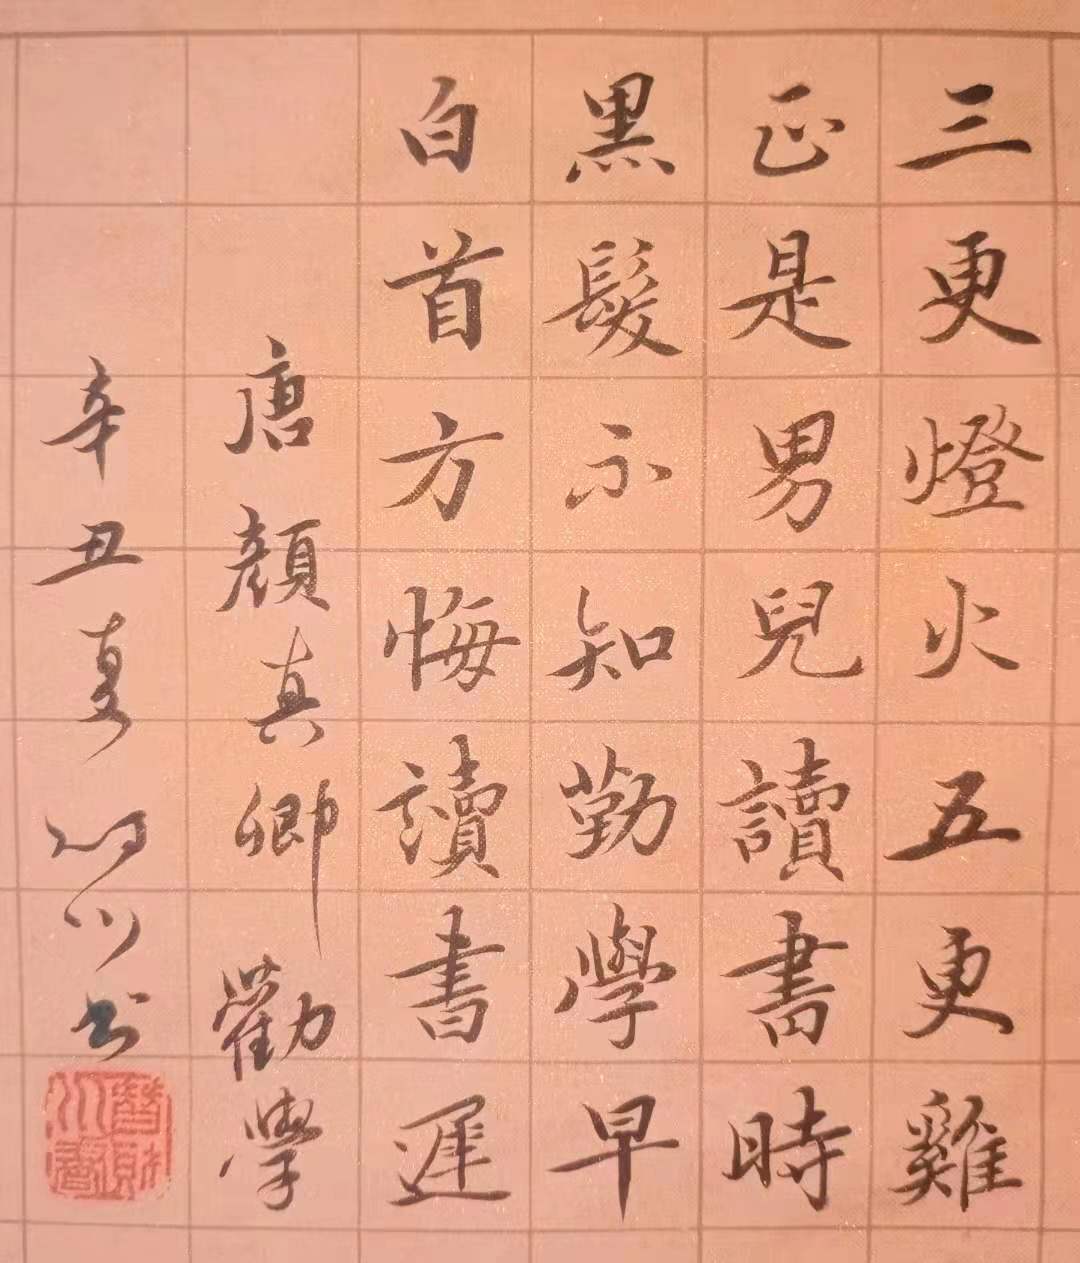 三更燈火五更雞
正是男兒讀書時
黑髮不知勤學早
白首方悔讀書遲
唐顏真卿勸學
辛丑夏
川書